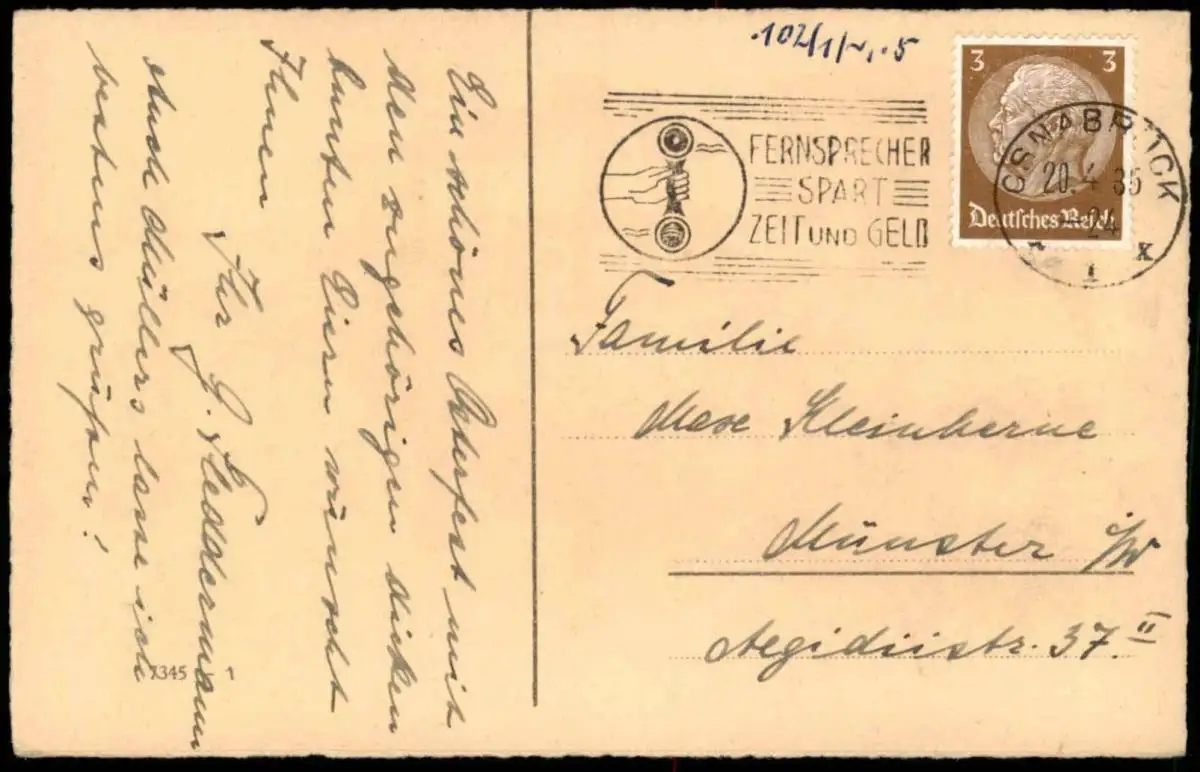 Ein schönes Osterfest mit
den zugehörigen dicken
bunten Eiern wünscht
Ihnen
Ihr G. Fleddermann
Auch Müllers lasse ich
bestens grüßen!
7345 1
FERNSPRECHER
SPART
ZEIT UND GELD
3 3
Deutsches Reich
OSNABRÜCK
20.4.35
-24
x
1
Familie
Max Kleinherne
Münster i/W
Aegidiistr. 37. II